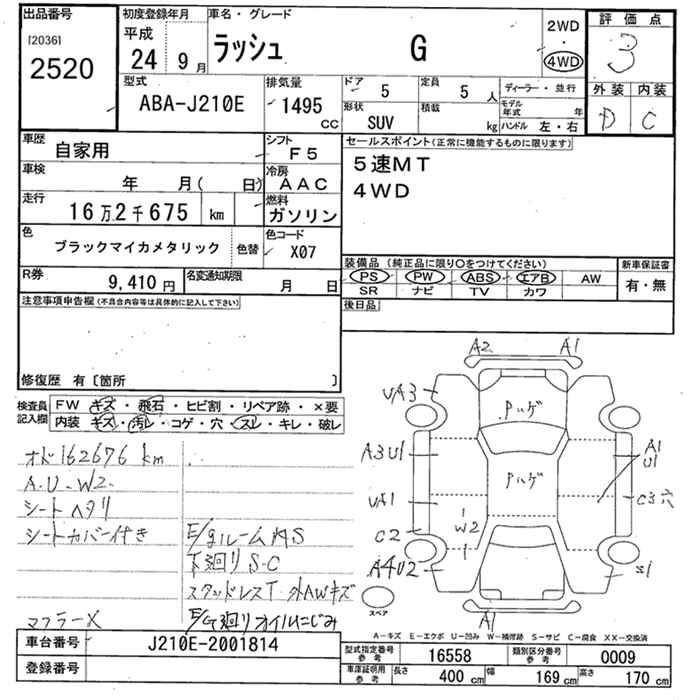 出品番号 初度登録年月 車名・グレード 2WD 評価点
[2036] 平成 ラッシュ G ・ 3
2520 24 9月 4WD 外装 内装
型式 排気量 ドア 定員 ディーラー・並行 D C
ABA-J210E 1495 CC 5 5人 モデル年式 年
形状 積載 ハンドル 左・右
SUV kg
車歴 シフト セールスポイント(正常に機能するものに限ります)
自家用 F5 5速MT
車検 冷房 4WD
年 月( 日) AAC
走行 燃料
16万2千675 km ガソリン
色 色コード
ブラックマイカメタリック 色替 X07
R券 名変通知期限 装備品(純正品に限り○をつけてください) 新車保証書
9,410円 月 日 PS PW ABS エアB AW 有・無
SR ナビ TV カワ
注意事項申告欄(不具合内容等は具体的に記入して下さい) 後日品
修復歴 有〔箇所 〕
検査員記入欄 FW キズ・飛石・ヒビ割・リペア跡・×要
内装・キズ・汚レ・コゲ・穴・スレ・キレ・破レ
オド162676 km
A.U.W2
シートヘタリ
シートカバー付き E/gルーム内S
下廻りS-C
スタッドレスT 外AWキズ
マフラーX E/G廻りオイルにじみ
A2 A1
UA3 Pハゲ
A3U1 Pハゲ A1
U1
UA1 C3穴
C2 W2
A4U2
A1
スペア
A-キズ E-エクボ U-凹み W-補修跡 S-サビ C-腐食 XX-交換済
車台番号 J210E-2001814 型式指定番号 参考 16558 類別区分番号 参考 0009
登録番号 車庫証明用 参考 長さ 400 cm 幅 169 cm 高さ 170 cm